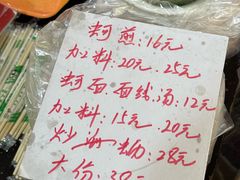 蚵煎:16元
加料:20元 25元
蚵面 面线汤:12元
加料:15元 20元
炒 28元
大份:38元